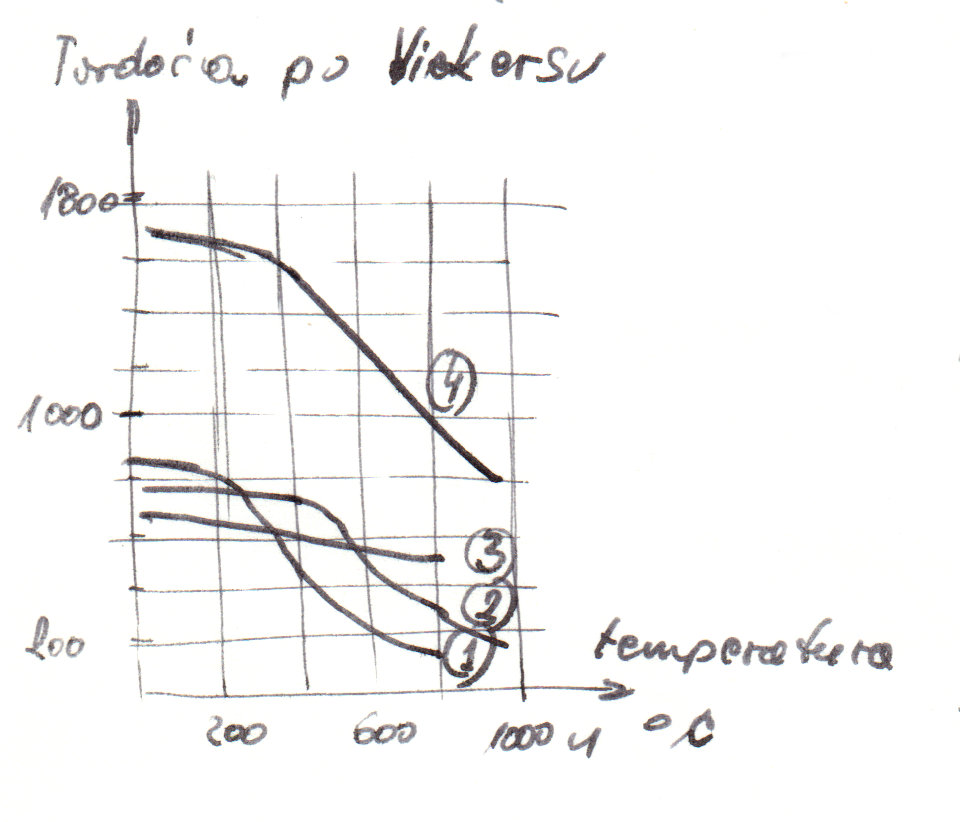 Tvrdoća po Vickersu
1800
4
1000
3
2
200
1
temperatura
200 600 1000 u °C